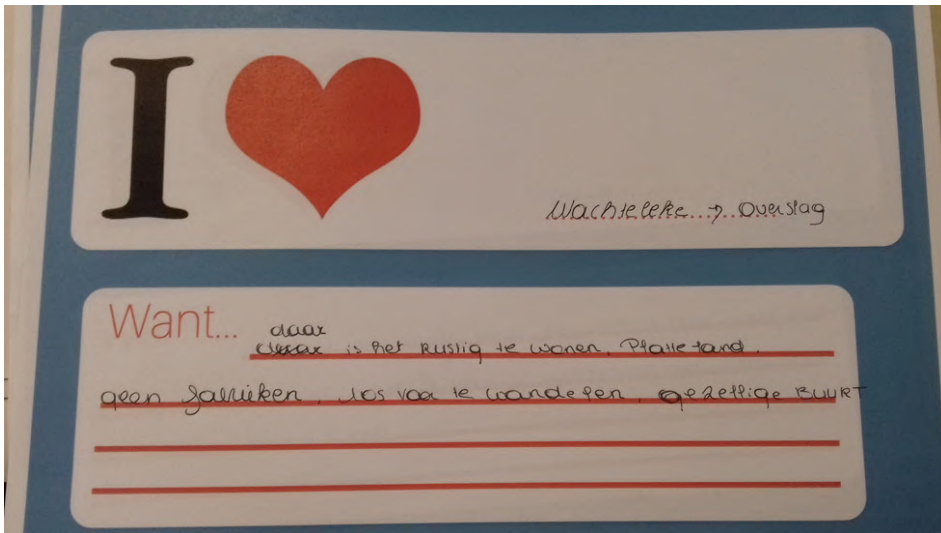 I ❤
Wachtebeke → Overslag
Want... daar
is het Rustig te wonen. Platteland.
geen fabrieken. bos voor te wandelen. gezellige BUURT